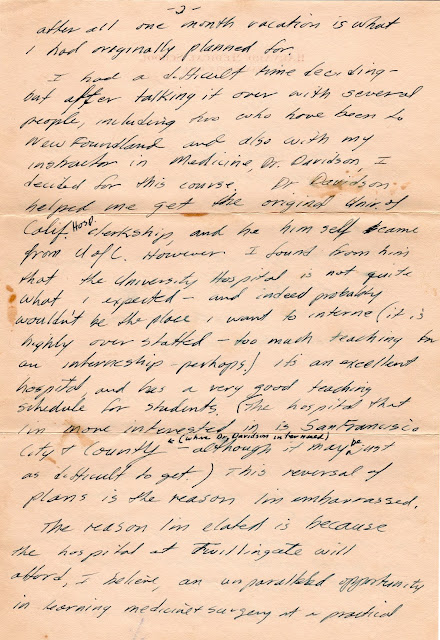 -3-
after all one month vacation is what
I had originally planned for.
I had a difficult time deciding -
but after talking it over with several
people, including two who have been to
New Foundland and also with my
instructor in Medicine, Dr. Davidson I
decided for this course. Dr Davidson
helped me get the original Univ. of
Calif. Hosp. clerkship, and he himself came
from U of C. However I found from him
that the University Hospital is not quite
what I expected - and indeed probably
wouldn't be the place I want to interne (it is
highly over staffed - too much teaching for
an interneship - perhaps.) it's an excellent
hospital, and has a very good teaching
schedule for students. (The hospital that
I'm more interested in is San Francisco
(where Dr. Davidson interned)
City & County - although it may be just
as difficult to get.) This reversal of
plans is the reason I'm embarrassed.
The reason I'm elated is because
the hospital at Twillingate will
afford, I believe, an unparalleled opportunity
in learning medicine & surgery at a practical